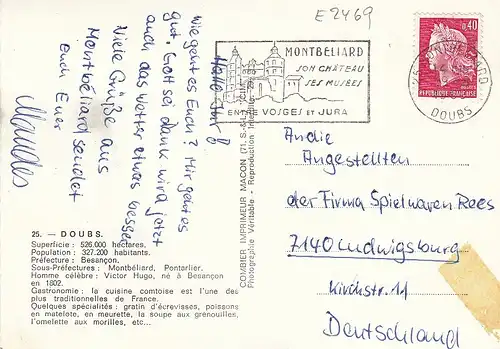 E 2469
Hallo Ihr!
wie geht es Euch? Mir geht es
gut. Gott sei dank wird jetzt
auch das Wetter etwas besser
Viele Grüße aus
Montbéliard sendet
Euch Euer
MONTBÉLIARD
SON CHÂTEAU
SES MUSÉES
ENTRE VOSGES ET JURA
25 MONTBÉLIARD
DOUBS
0,40
RÉPUBLIQUE FRANÇAISE
COMBIER IMPRIMEUR MACON (71. S.-&-L.)
Photographie Véritable - Reproduction Interdite
An die
Angestellten
der Firma Spielwaren Rees
7140 Ludwigsburg
Kirchstr. 11
Deutschland
25. — DOUBS.
Superficie : 526.000 hectares.
Population : 327.200 habitants.
Préfecture : Besançon.
Sous-Préfectures : Montbéliard, Pontarlier.
Homme célèbre : Victor Hugo, né à Besançon
en 1802.
Gastronomie : la cuisine comtoise est l'une des
plus traditionnelles de France.
Quelques spécialités : gratin d'écrevisses, poissons
en matelote, en meurette, la soupe aux grenouilles,
l'omelette aux morilles, etc...